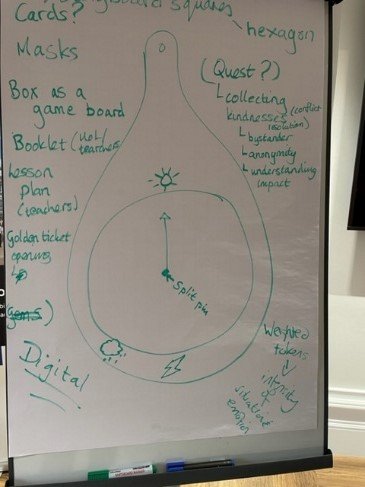 board squares
Cards?
hexagon
Masks
(Quest?)
collecting
kindnesses (conflict
resolution)
bystander
anonymity
understanding
impact
Box as a
game board
Booklet (
teachers
Lesson
plan
(teachers)
Golden ticket
opening
Gems)
Split pin
Digital
Weighted
tokens
of
situation &
emotion